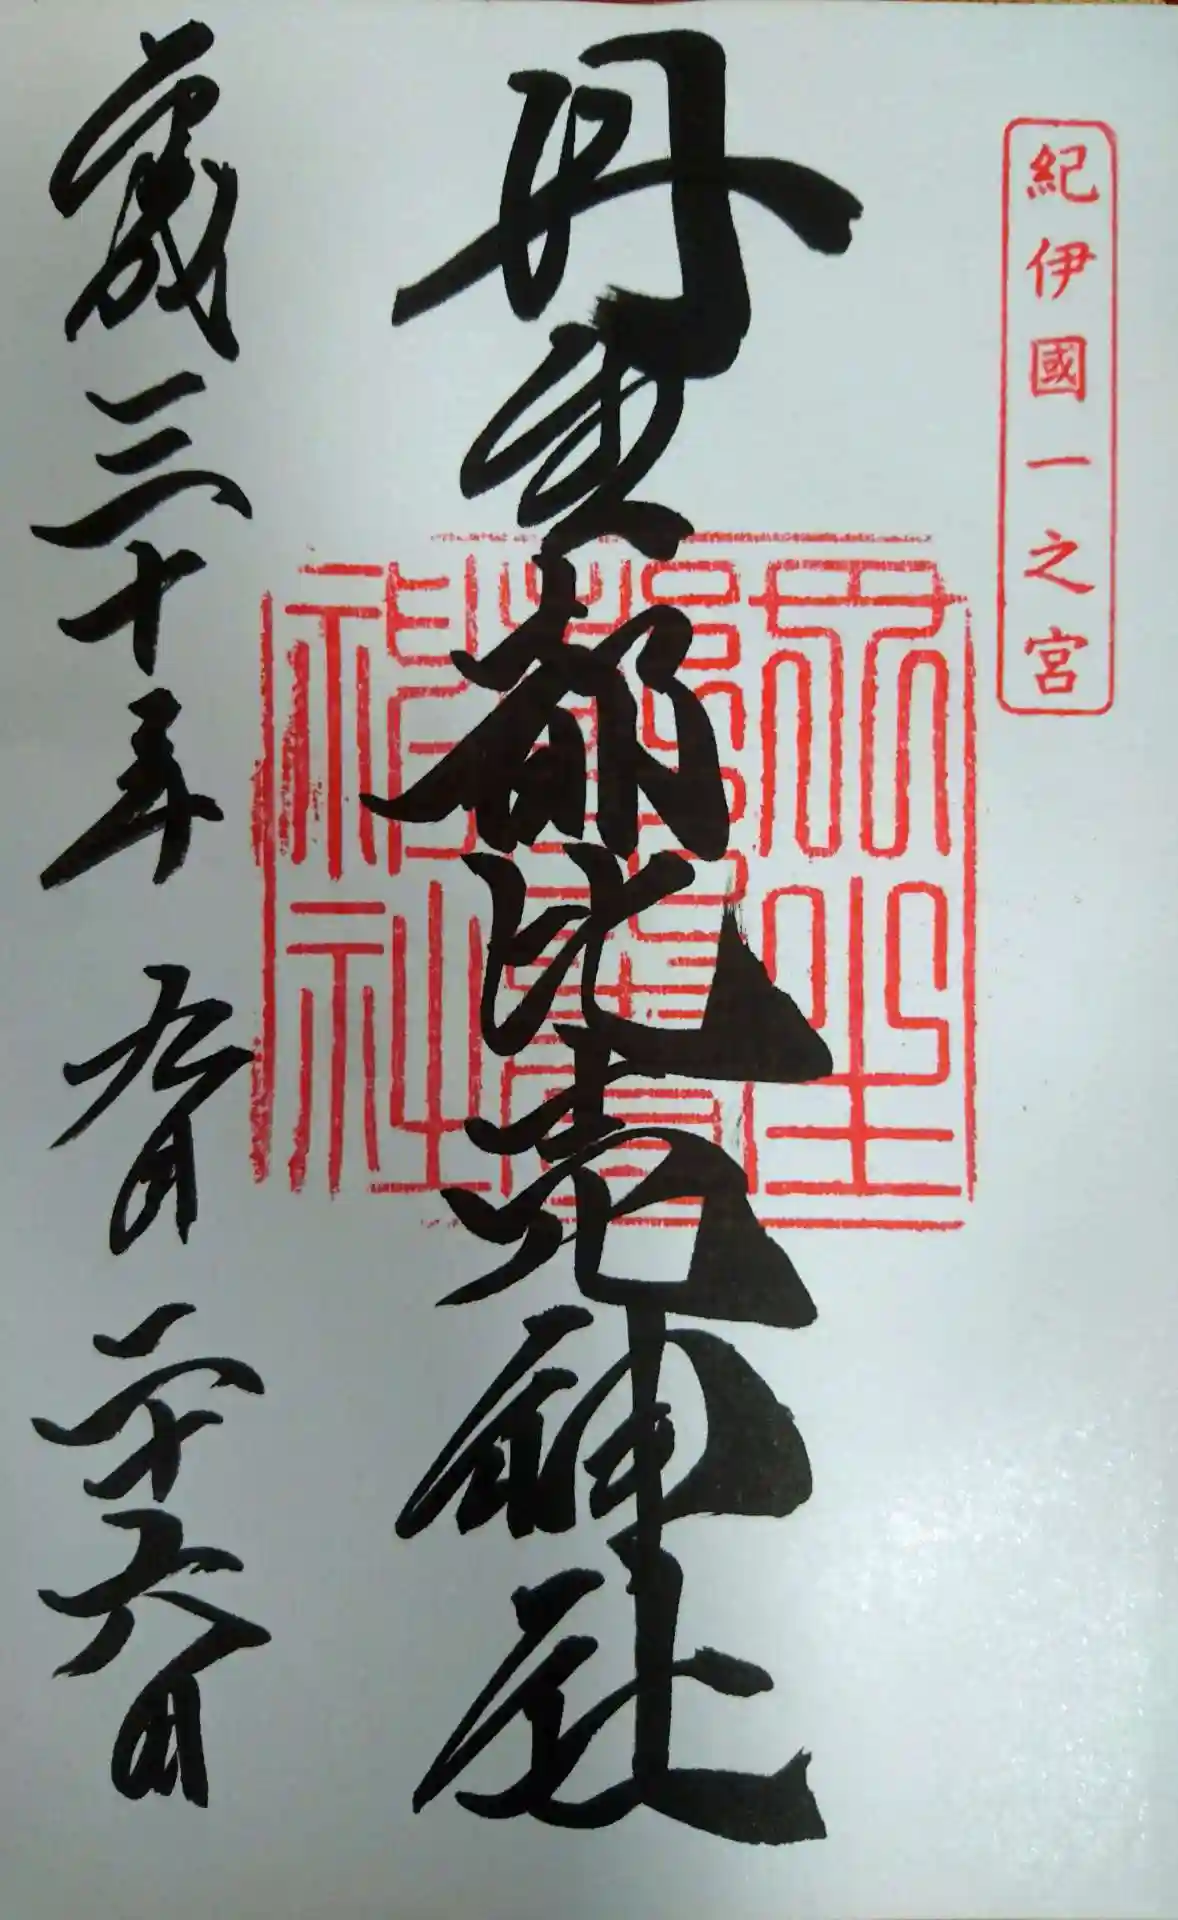 紀伊國一之宮
丹生都比売神社
丹生都比賣神社
歳三十年九月二十六日